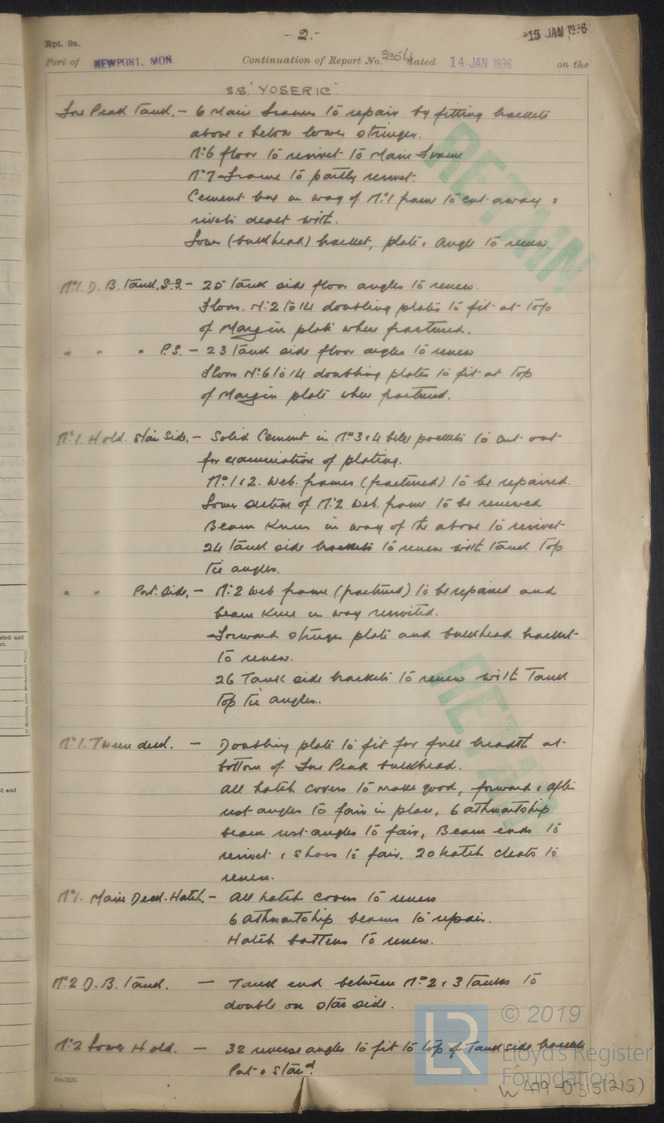 - 2. -
15 JAN 1936
Rpt. 9a.
Port of NEWPORT, MON. Continuation of Report No. 2354 dated 14 JAN 1936 on the
S.S. "YOSERIC"
Fore Peak Tank. - 6 Main Frames to repair by fitting brackets
above & below lower stringer.
No. 6 floor to rerivet to Main Frame
No. 7 Frame to partly rerivet.
Cement box in way of No. 1 frame to cut away &
rivets dealt with.
Lower (bulkhead) bracket, plate & angle to renew.
No. 1 D.B. Tank, S.S. - 25 tank side floor angles to renew.
Floors No. 2 to 14 doubling plates to fit at top
of Margin plate where fractured.
" " " P.S. - 23 Tank side floor angles to renew
Floors No. 6 to 14 doubling plates to fit at top
of Margin plate where fractured.
No. 1 Hold. Star Side. - Solid Cement in Nos 3 & 4 bilge pockets to cut out
for examination of plating.
Nos 1 & 2 Web frames (fractured) to be repaired.
Lower section of No. 2 Web frame to be renewed
Beam Knees in way of the above to rerivet
24 tank side brackets to renew with tank top
tie angles.
" " Port Side. - No. 2 Web frame (fractured) to be repaired and
beam knee in way reriveted.
Forward stringer plate and bulkhead bracket
to renew.
26 Tank side brackets to renew with Tank
Top tie angles.
No. 1 Tween deck. - Doubling plate to fit for full breadth at
bottom of Fore Peak bulkhead.
All hatch covers to make good, forward & after
rest angles to fair in place, 6 athwartship
beam rest angles to fair, Beam ends to
rerivet & shoes to fair. 20 hatch cleats to
renew.
No. 1 Main Deck Hatch. - All hatch covers to renew
6 Athwartship beams to repair.
Hatch battens to renew.
No. 2 D.B. Tank. - Tank end between Nos 2 & 3 tanks to
double on star side.
No. 2 Lower Hold. - 32 reverse angles to fit to top of Tank side brackets
Port & Stard.
RETAIN
RETAIN
© 2019
LR
Lloyd's Register
Foundation
W479-0315(215)